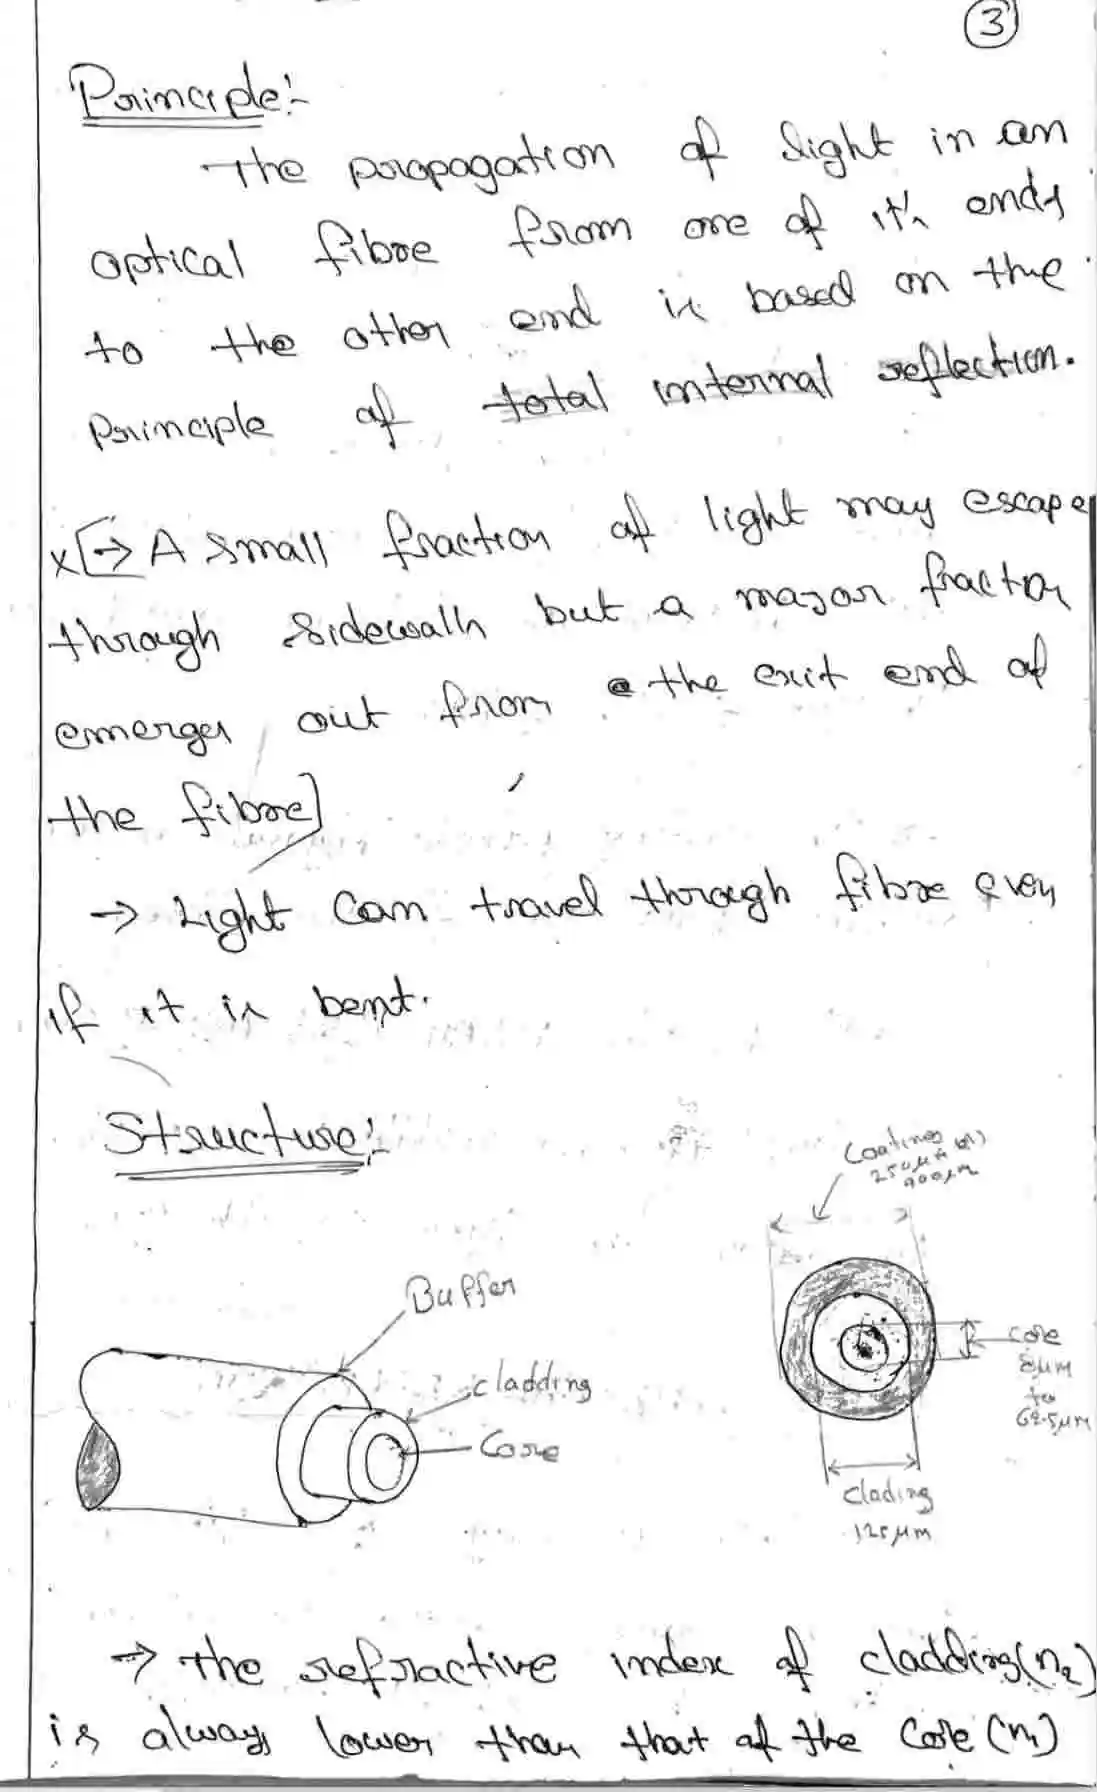 3
Principle:-
The propagation of light in an
optical fibre from one of it's ends
to the other end is based on the
principle of total internal reflection.
x[→ A small fraction of light may escape
through sidewalls but a major fraction
emerges out from the exit end of
the fibre]
→ Light can travel through fibre even
if it is bent.
Structure:-
Coatings
250μm (or)
900μm
Buffer
cladding
Core
core
8μm
to
62.5μm
clading
125μm
→ The refractive index of cladding (n₂)
is always lower than that of the core (n₁)